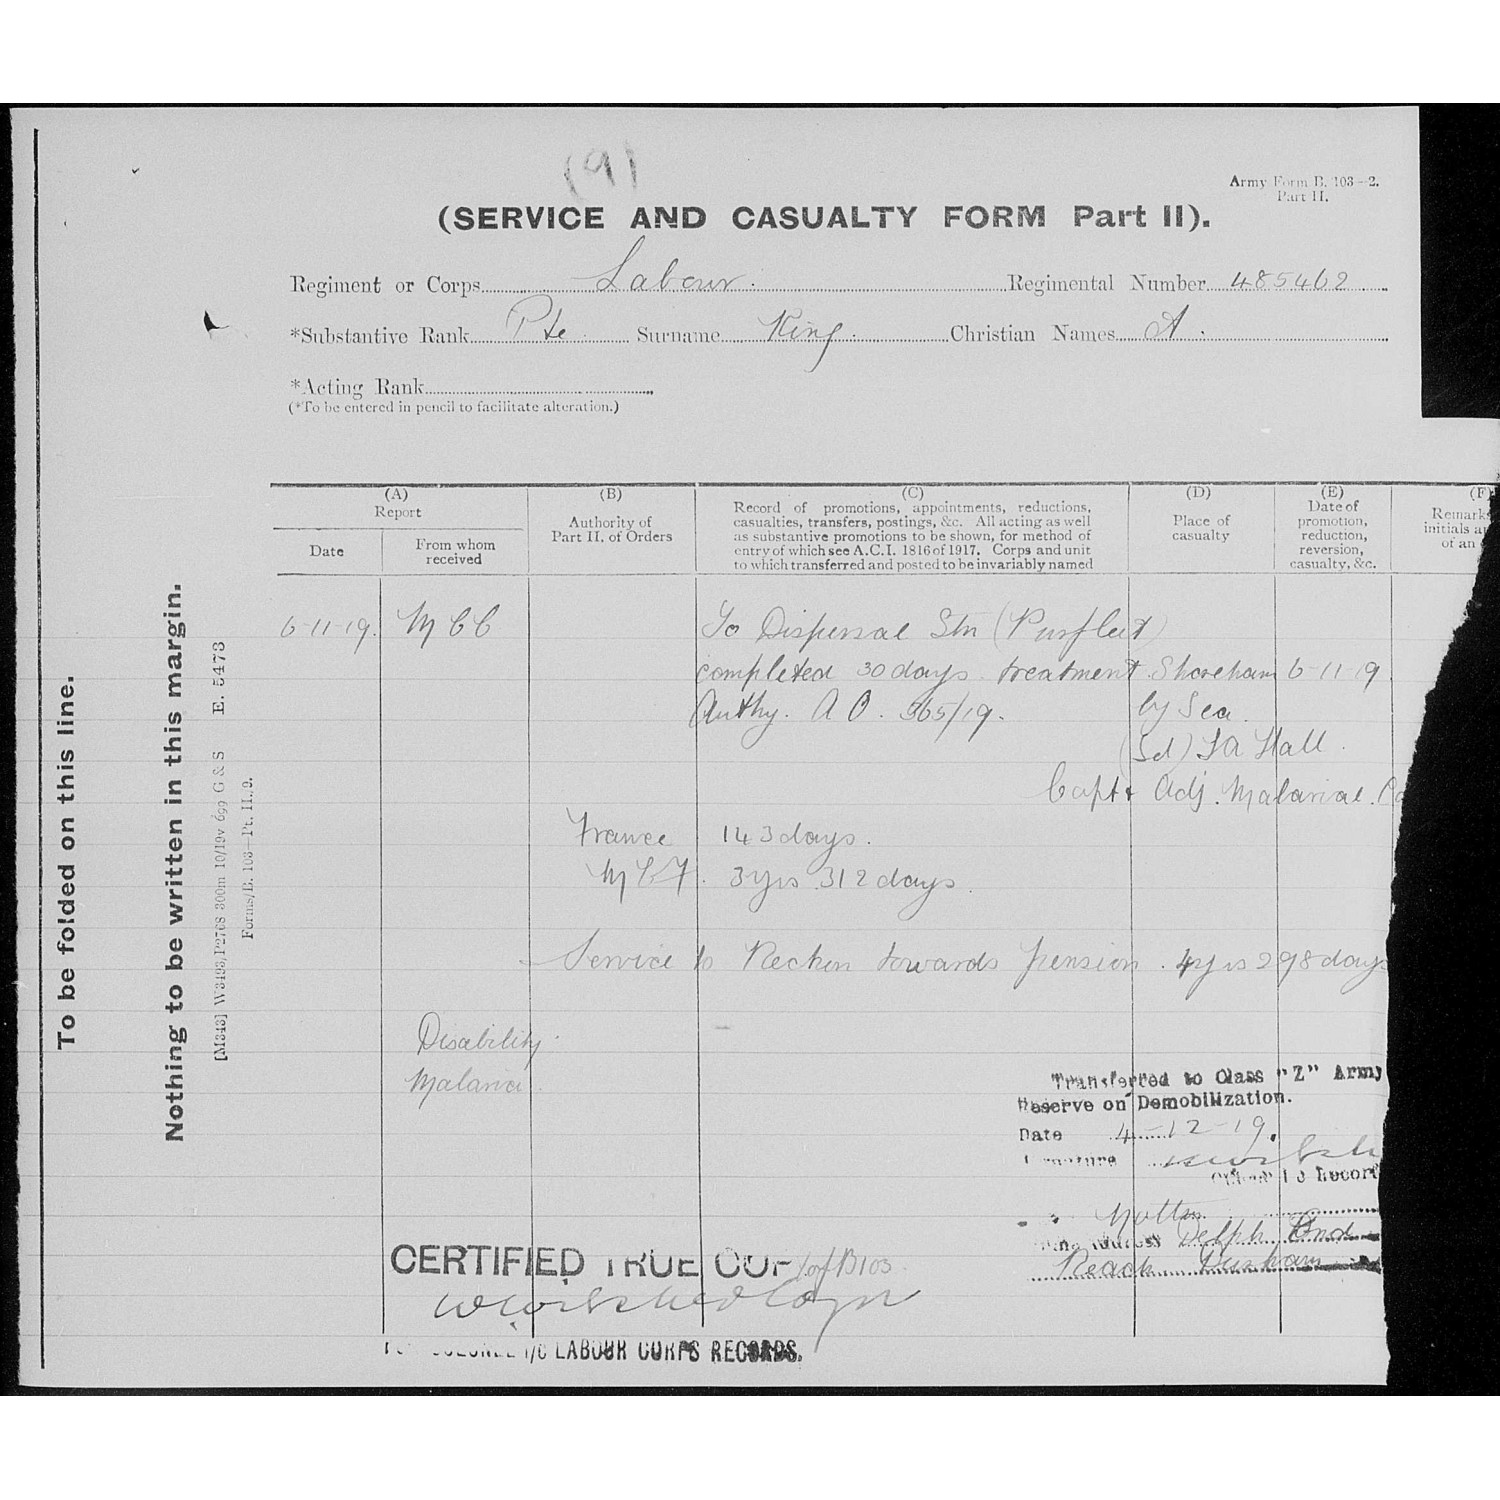 (9)
Army Form B. 103—2.
Part II.
(SERVICE AND CASUALTY FORM Part II).
Regiment or Corps Labour. Regimental Number 485462
*Substantive Rank Pte Surname King. Christian Names A.
*Acting Rank
(*To be entered in pencil to facilitate alteration.)
To be folded on this line.
Nothing to be written in this margin.
[M343] W3493/P2768 300m 10/19v 699 G & S E. 5473
Forms/B. 103—Pt. II./2.
(A)
Report
Date
From whom received
(B)
Authority of
Part II. of Orders
(C)
Record of promotions, appointments, reductions,
casualties, transfers, postings, &c. All acting as well
as substantive promotions to be shown, for method of
entry of which see A.C.I. 1816 of 1917. Corps and unit
to which transferred and posted to be invariably named
(D)
Place of
casualty
(E)
Date of
promotion,
reduction,
reversion,
casualty, &c.
(F)
Remark
initials a
of an
6-11-19. MCC To Dispersal Stn (Purfleet)
completed 30 days treatment Shoreham 6-11-19
Authy. A O. 565/19. by Sea.
(Sd) Hall.
Capt & Adj. Malarial.
France 143 days.
3 yrs 312 days.
Service to Reckon towards pension. 4 yrs 298 days
Disability.
Malaria.
Transferred to Class "Z" Army
Reserve on Demobilization.
Date 4-12-19.
Signature
i/c Record
Address Delph End
Reach
CERTIFIED TRUE COPY of B103.
COLONEL I/C LABOUR CORPS RECORDS.